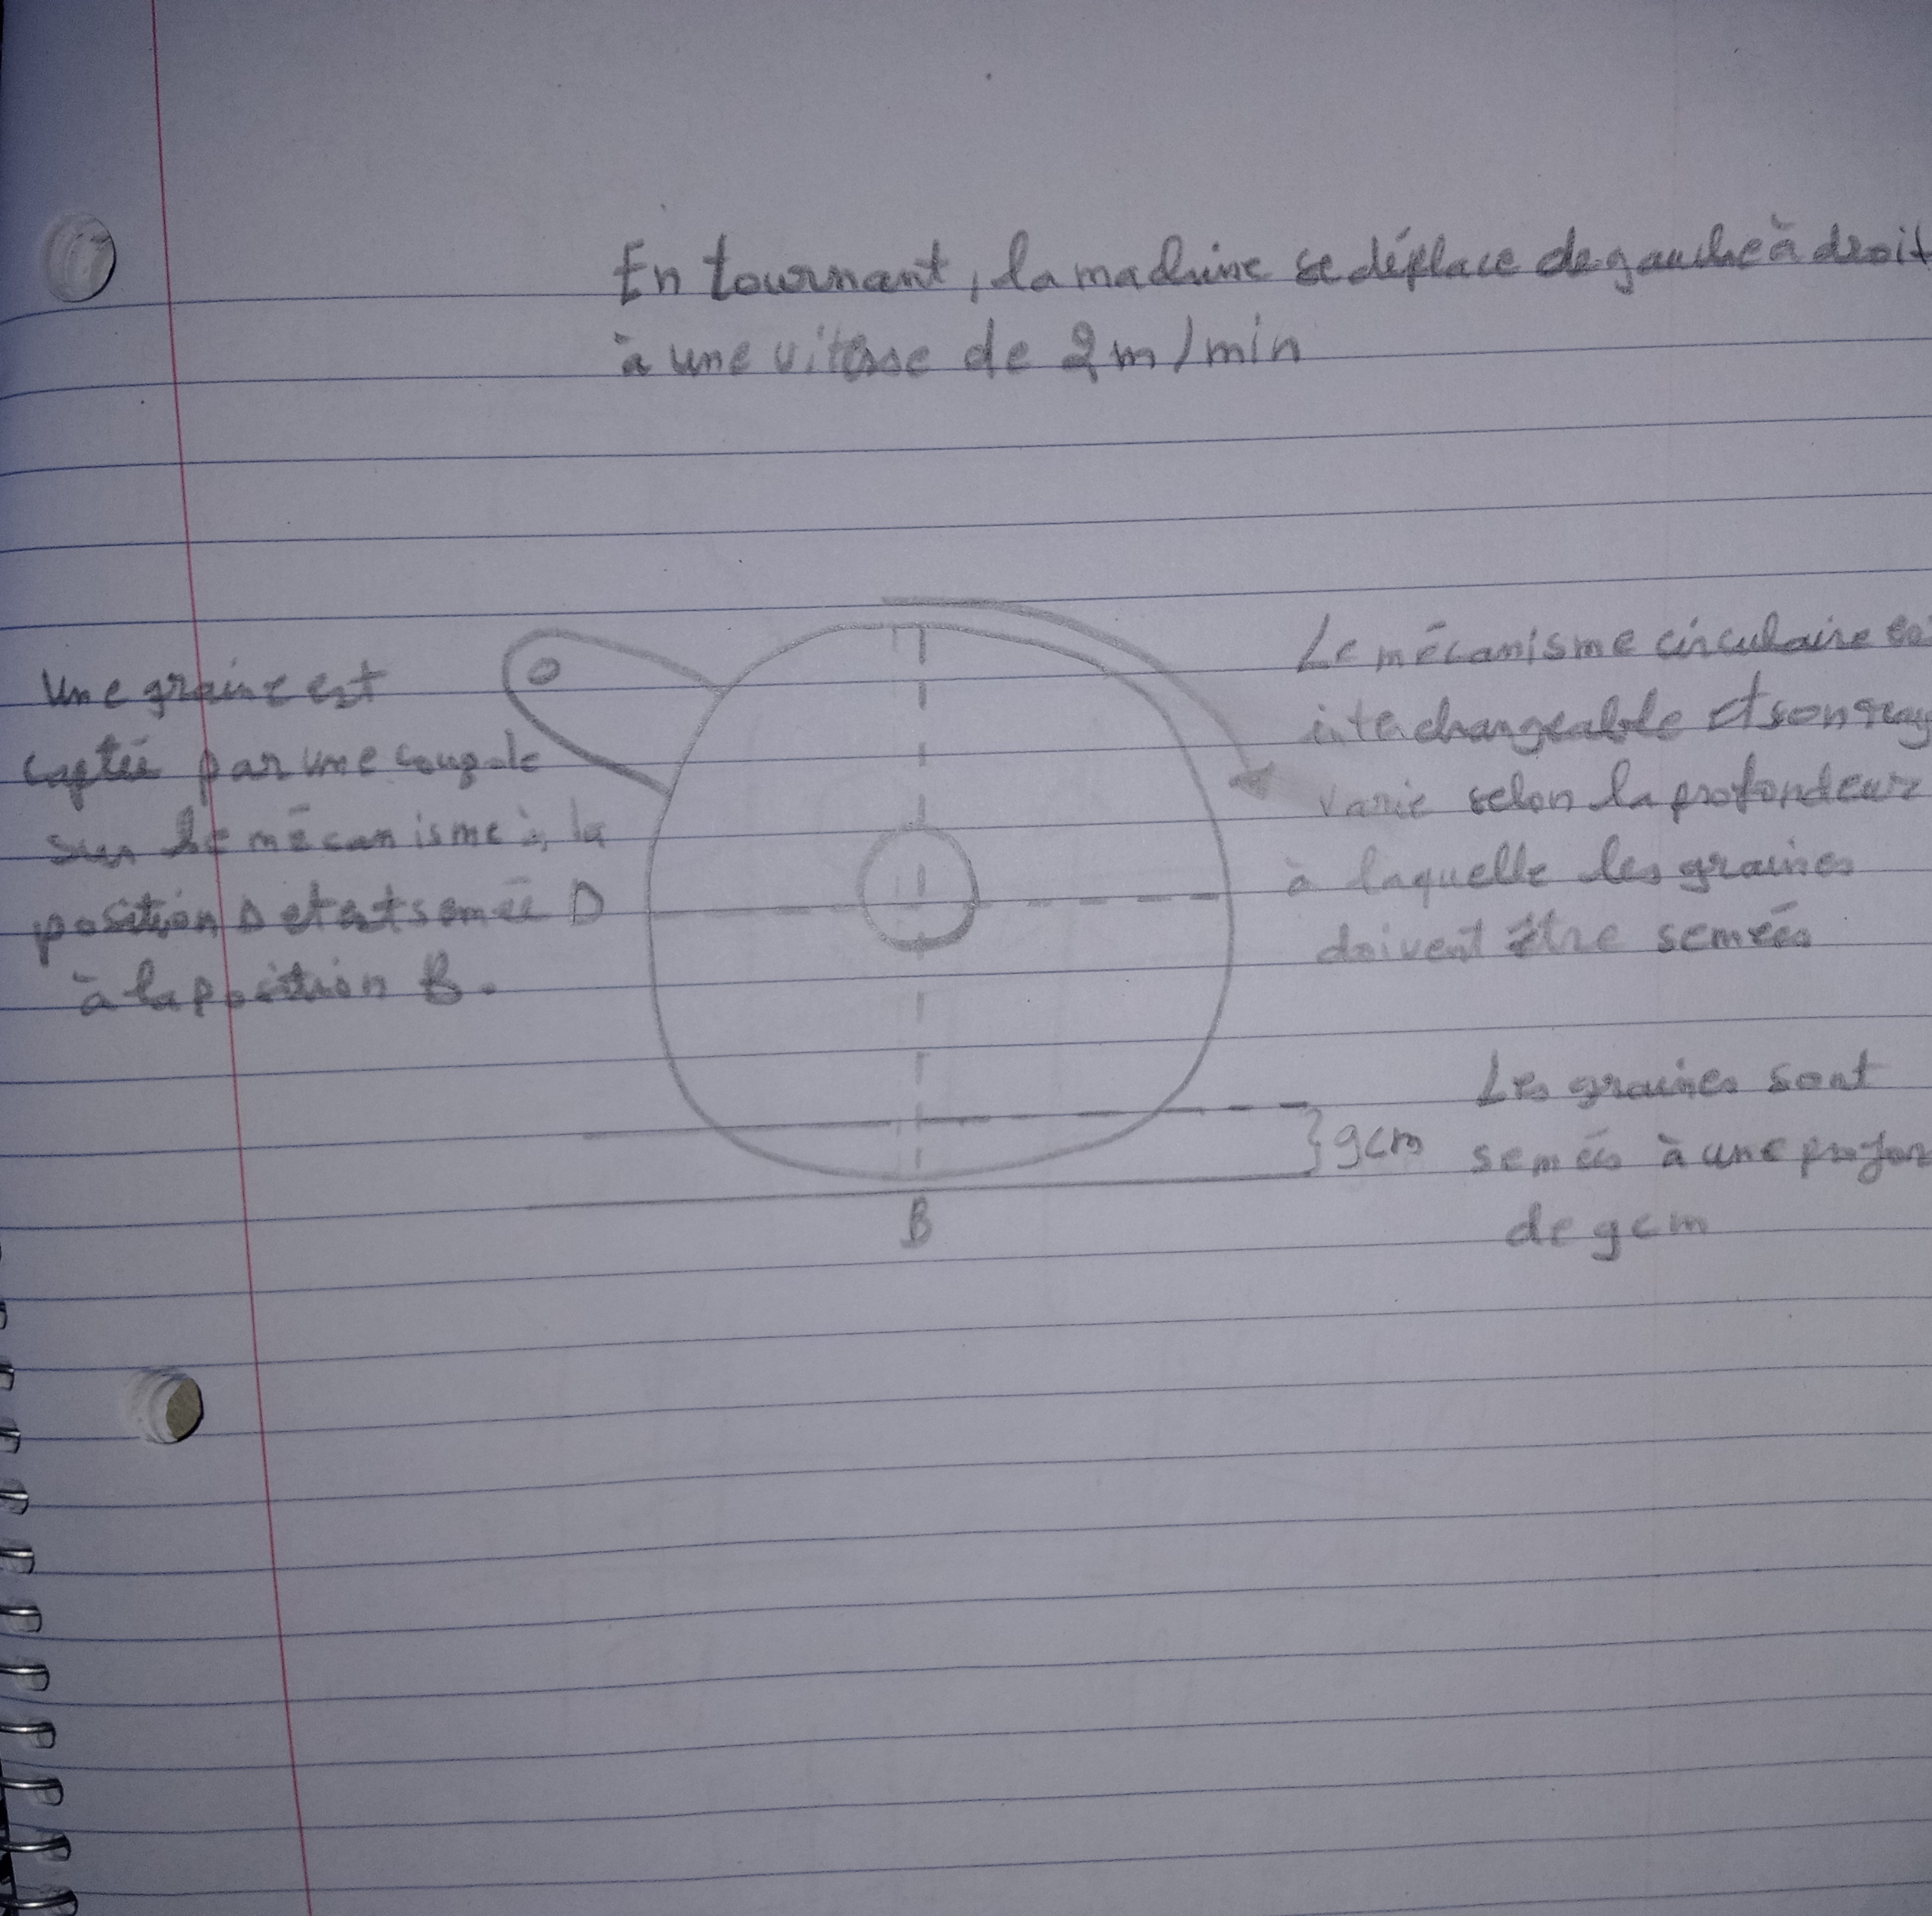 En tournant, la machine se déplace de gauche à droit
à une vitesse de 2m/min
Une graine est
captée par une coupole
sur le mécanisme à la
position D et est semée
à la position B.
D
Le mécanisme circulaire
interchangeable et son
varie selon la profondeur
à laquelle les graines
doivent être semées
9cm
Les graines sont
semées à une profon
de 9cm
B